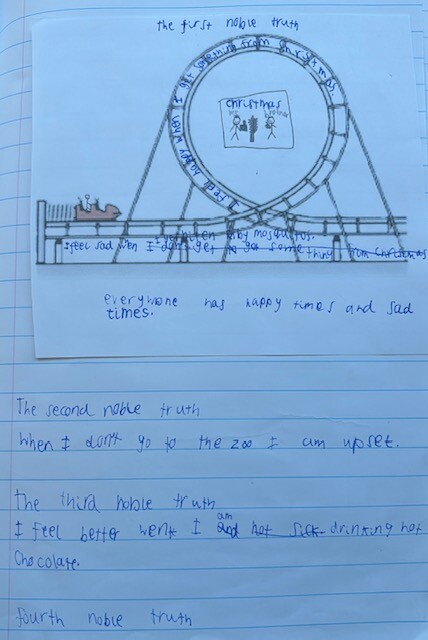 the first noble truth
I feel happy when I get something from christmas.
christmas
bitten by mosquitos.
I feel sad wen I don't get to get some thing from christmas
everywone has happy times and sad
times.
The second noble truth
When I don't go to the zoo I am upset.
The third noble truth
I feel better wenk I am and hot sick drinking hot
chocolate.
fourth noble truth